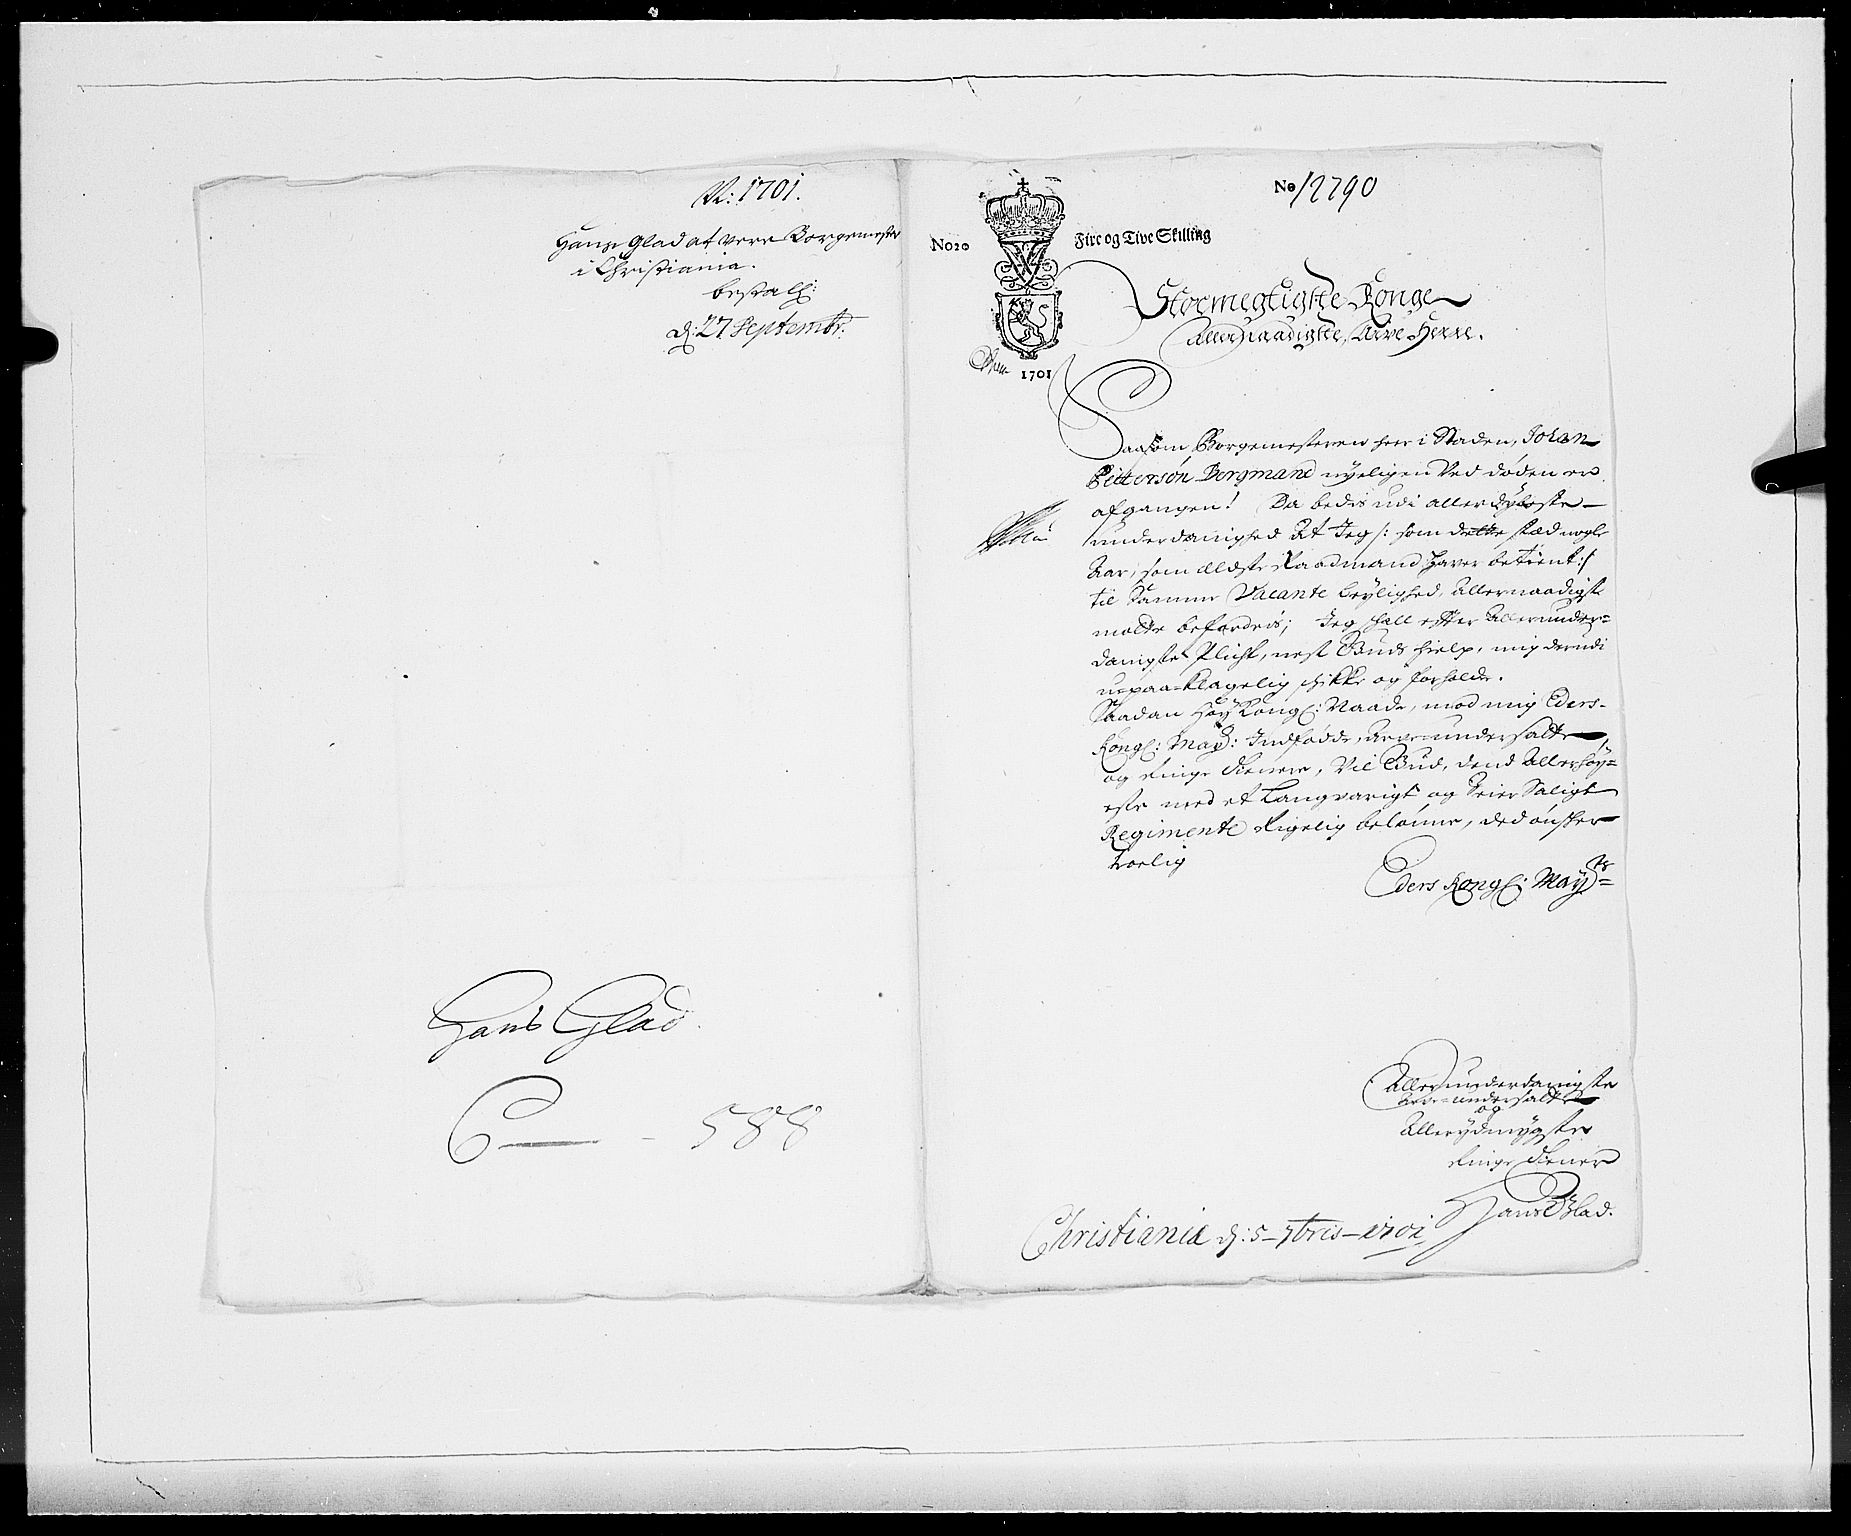 N: 1701.
Hans Glad at vere Borgemester
i Christiania.
bestalt:
d: 27 Septembr:
Hans Glad
C — 588
No 12790
No 20
Fire og Tive Skilling
1701
Stormegtigste Konge
Allernaadigste, Arve Herre.
Saasom Borgemesteren her i Staden, Johan
Pettersøn Bergmand nyeligen Ved døden er
afgangen! Da bedis udi allerdybeste
underdanighed At Jeg /: som dette stæd nogle
Aar, som ældste Raadmand haver betient :/
til Samme Vacante leylighed, Allernaadigst
motte befordris; Jeg skall efter Allerunder=
danigste Plicht, nest Guds hielp, mig derudi
u=paa=klagelig skikke og forholde.
Saadan Høy Kongl: Naade, mod mig Eders
Kongl: May: Indfødde, Arve=undersatte
og ringe tienere, Vil Gud, dend Allerhøy=
este med et Langvarigt og Seier Saligt
Regimente Rigelig belønne, ded ønsker
troelig
Eders Kongl: Mayts
Allerunderdanigste
Arve=undersatte
og
Allerydmygste
ringe tienere
Hans Glad.
Christiania d: 5 7bris 1701